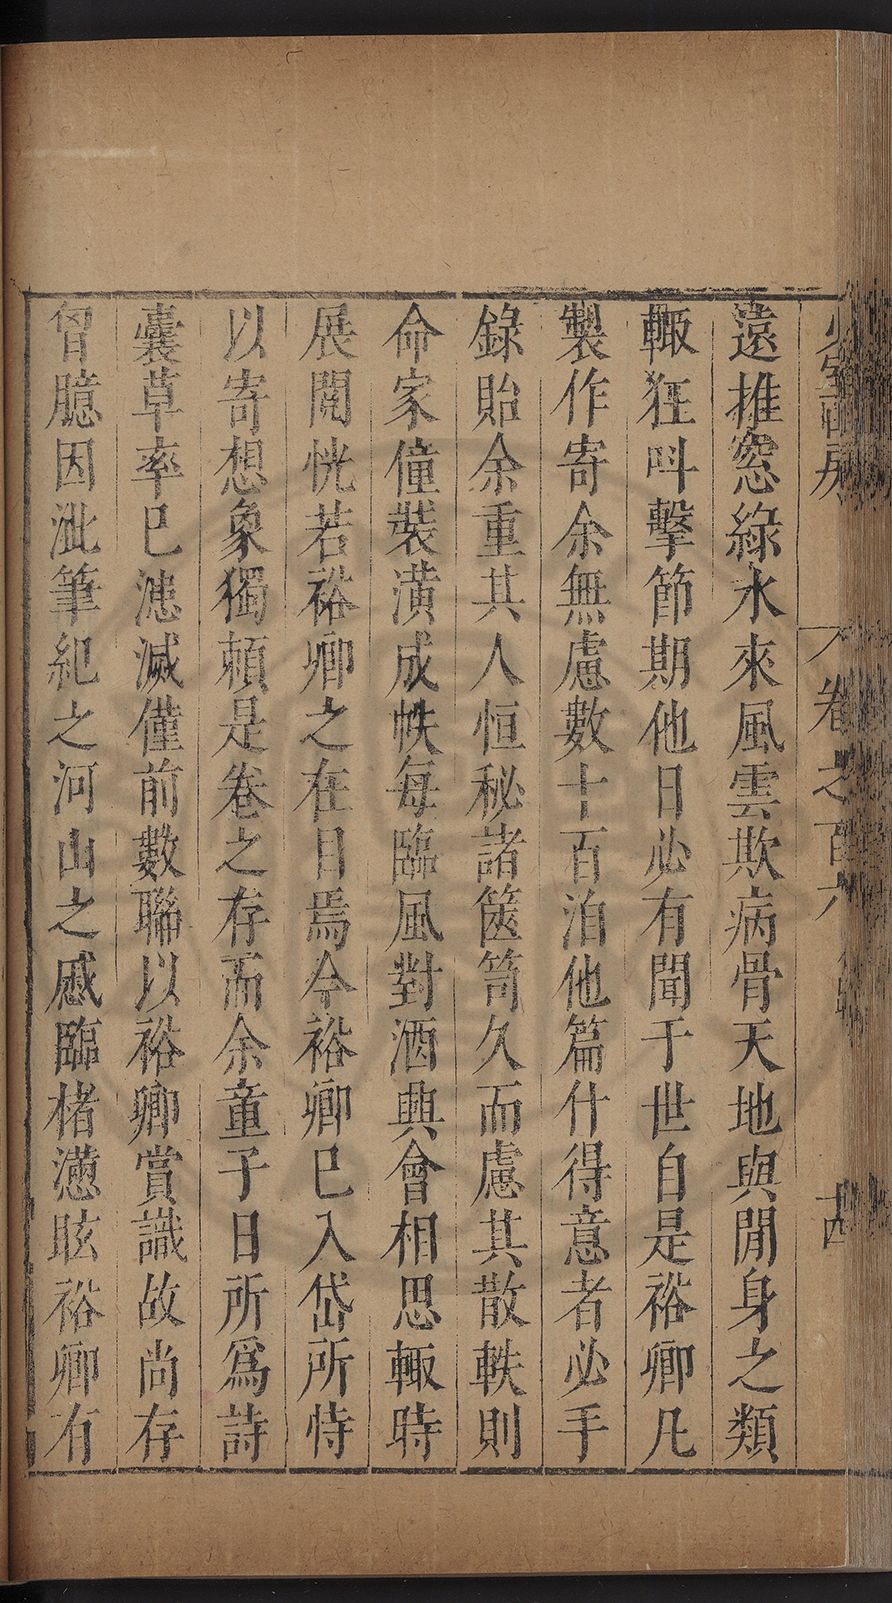 遠推窓綠水來風雲欺病骨天地與閒身之類
輙狂呌擊節期他日必有聞于世自是裕卿凡
製作寄余無慮數十百洎他篇什得意者必手
錄貽余重其人恒秘諸篋笥久而慮其散軼則
命家僮裝潢成帙每臨風對酒興會相思輙時
展閱恍若裕卿之在目焉今裕卿已入岱所恃
以寄想象獨頼是卷之存而余童子日所爲詩
囊草率已漶滅僅前數聯以裕卿賞識故尚存
胷臆因泚筆紀之河山之慼臨楮懣眩裕卿有
卷之百六
十四